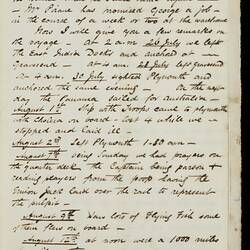 Mr Paine has promised George a job -
in the course of a week or two at the warehouse
Now I will give you a few remarks on
the voyage - at 2 a.m. 28 July we left
the East India Docks and anchored at -
Gravesend - at 11 a.m. 28 July left gravesend
at 4 a.m. 30 July sighted Plymouth and
anchored the same evening - On the next
day the Convanus sailed for Australia -
August 1st Ship with troops came at Plymouth
with Cholera on board - lost 4 while we -
stopped and laid ill -
August 2nd left Plymouth 1-30 a.m. -
August 7th being Sunday we had prayers on
the quarter deck the Captain being parson &
reading prayers from the poop having the
Union Jack laid over the rail to represent
the pulpit -
August 9th Saw lots of Flying Fish some
of them flew on board -
August 12th at noon were 1000 miles